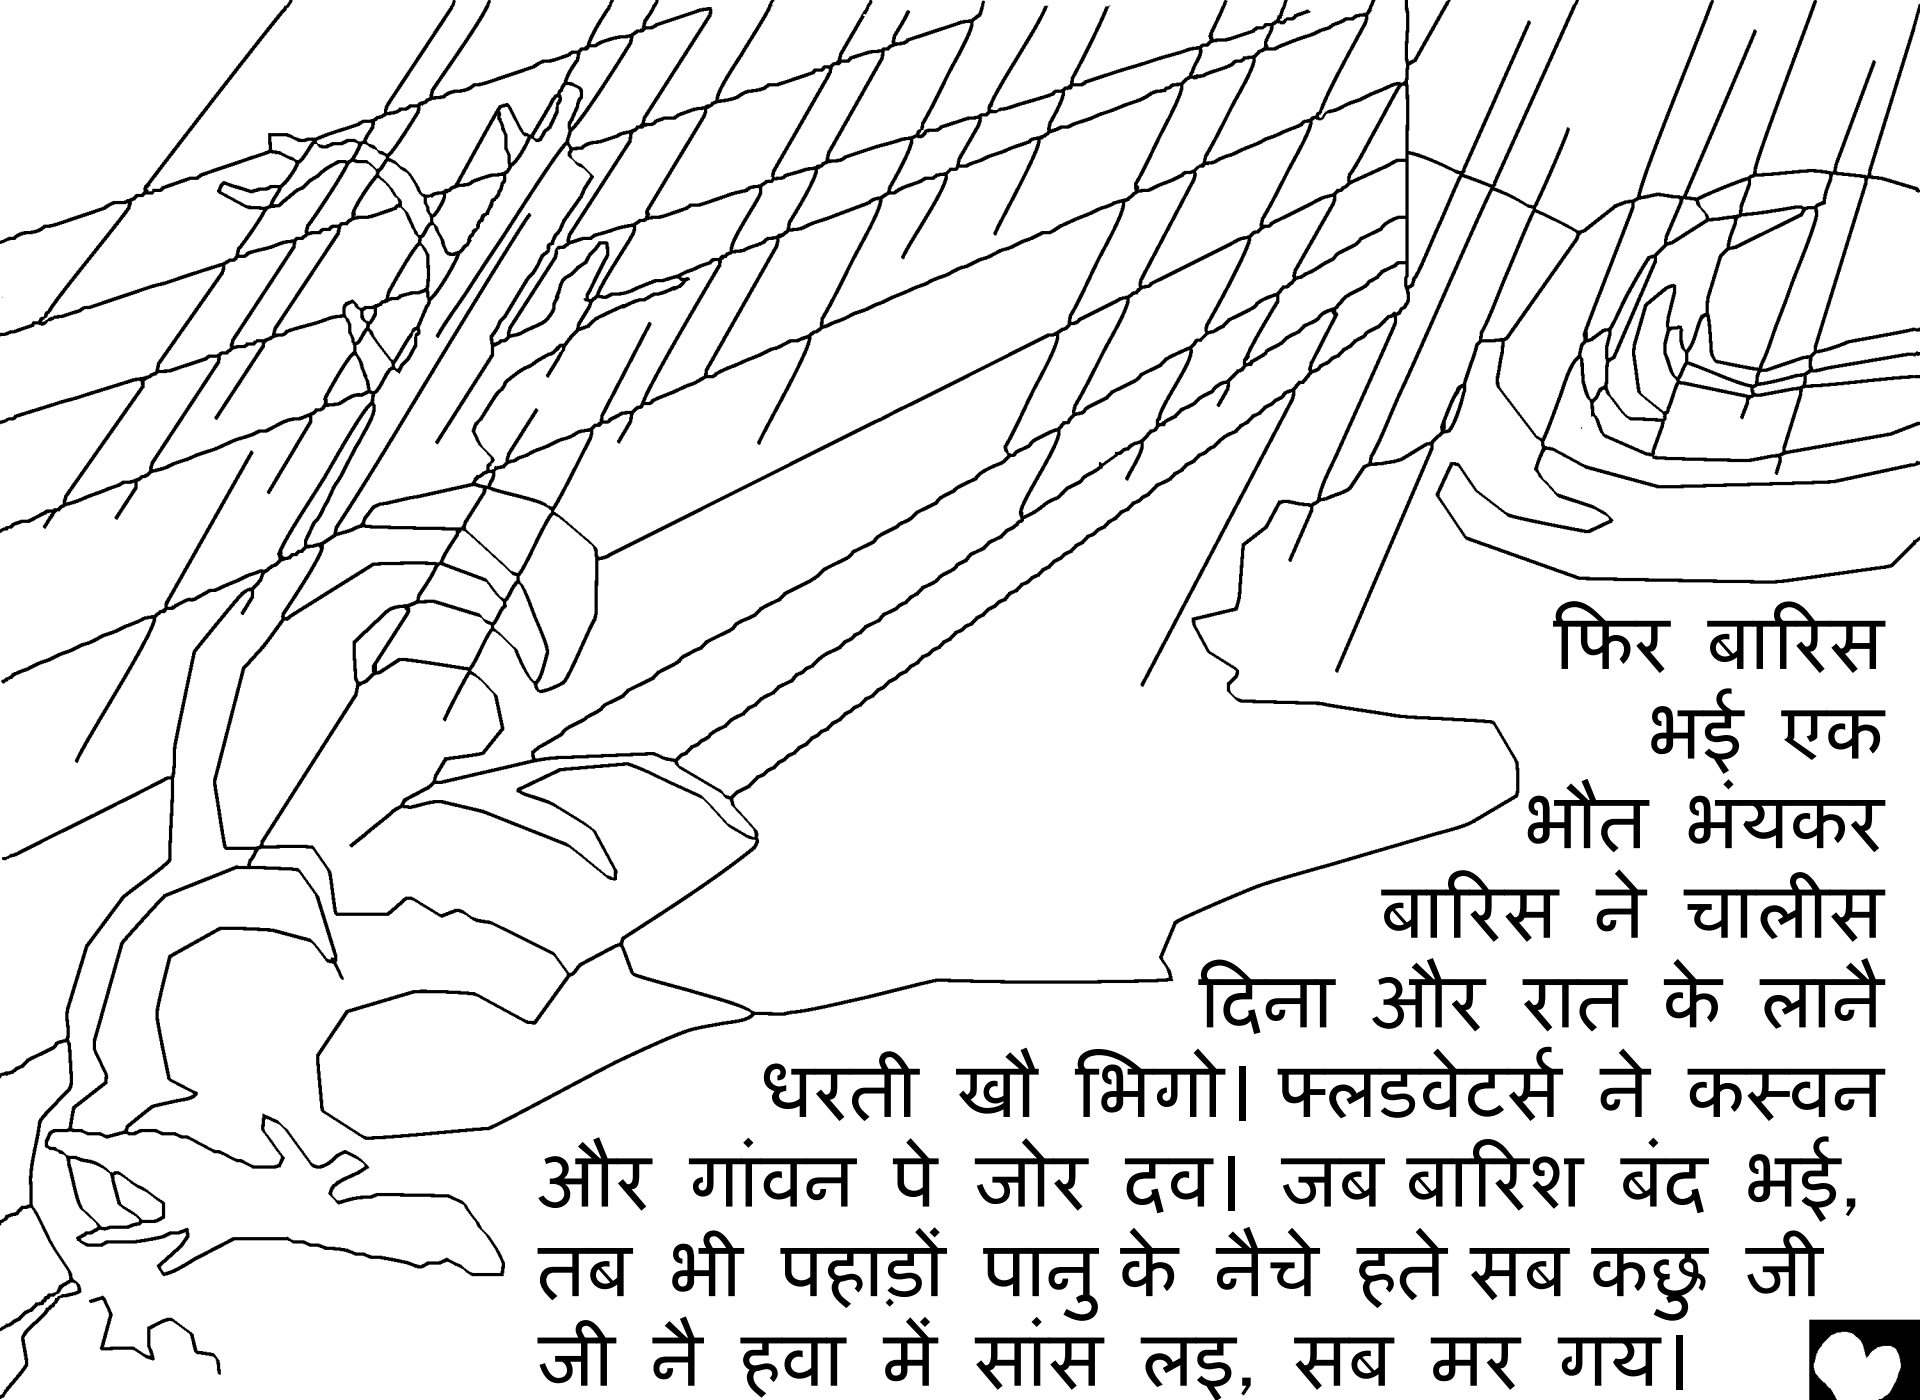 फिर बारिस
भई एक
भौत भंयकर
बारिस ने चालीस
दिना और रात के लानै
धरती खौ भिगो। फ्लडवेटर्स ने कस्वन
और गांवन पे जोर दव। जब बारिश बंद भई,
तब भी पहाड़ों पानु के नैचे हते सब कछु जी
जी नै हवा में सांस लइ, सब मर गय।